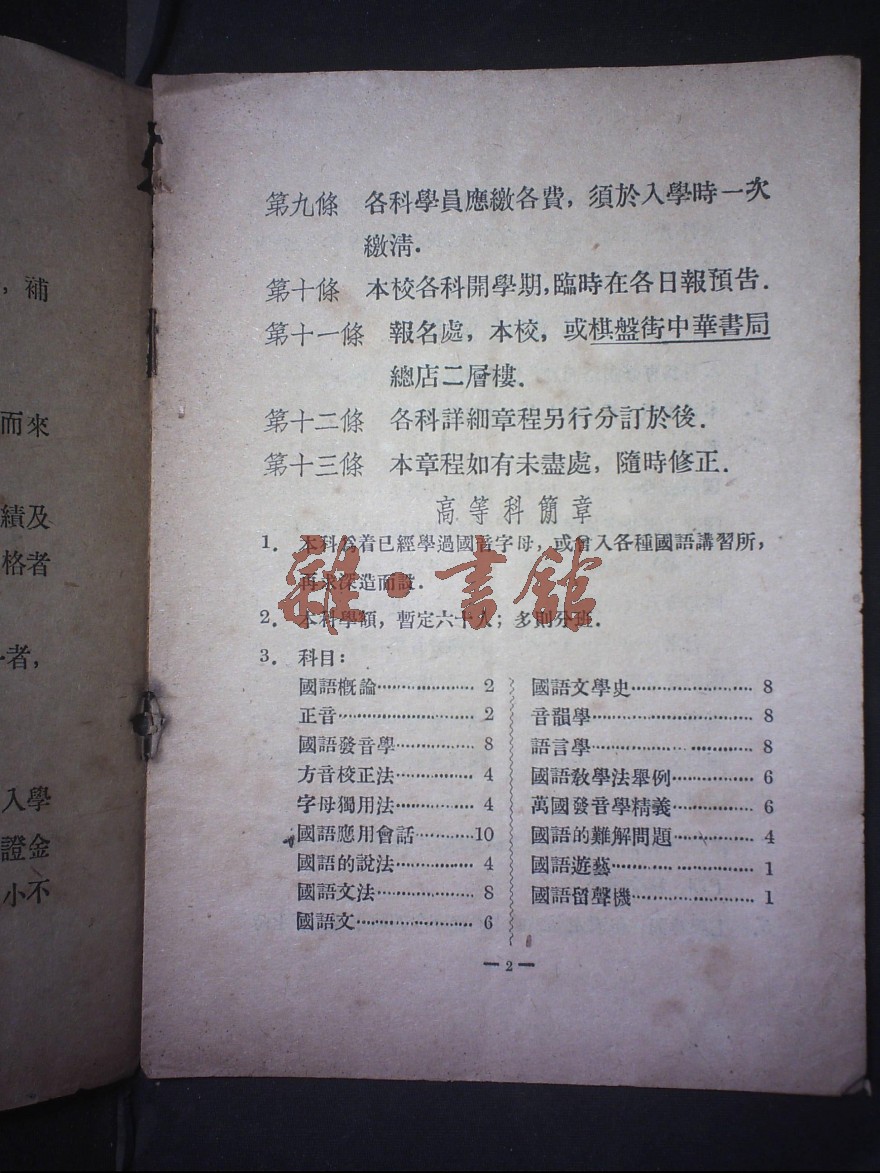 ，補
而來
績及
格者
者，
入學
證金
小不
第九條 各科學員應繳各費，須於入學時一次
繳淸．
第十條 本校各科開學期，臨時在各日報預告．
第十一條 報名處，本校，或棋盤街中華書局
總店二層樓．
第十二條 各科詳細章程另行分訂於後．
第十三條 本章程如有未盡處，隨時修正．
高等科簡章
1．本科爲着已經學過國音字母，或曾入各種國語講習所，
再求深造而設．
2．本科學額，暫定六十人；多則分班．
3．科目：
國語槪論…………………2
正音………………………2
國語發音學………………8
方音校正法………………4
字母獨用法………………4
國語應用會話……………10
國語的說法………………4
國語文法…………………8
國語文……………………6
國語文學史………………8
音韻學……………………8
語言學……………………8
國語敎學法舉例…………6
萬國發音學精義…………6
國語的難解問題…………4
國語遊藝…………………1
國語留聲機………………1
—2—
雜·書館